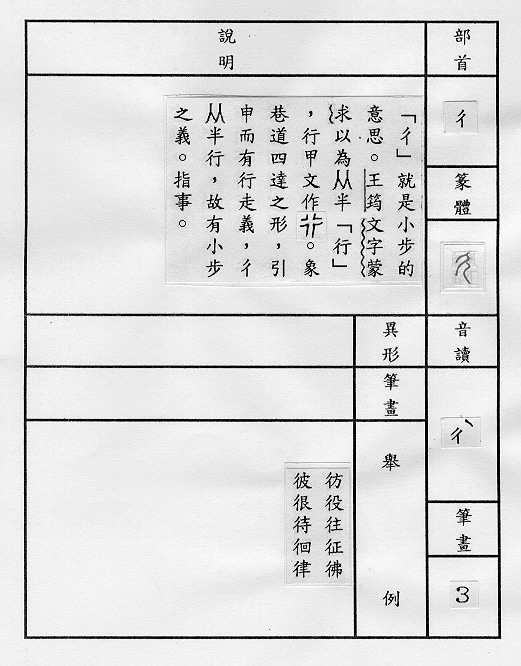 部首
彳
篆體
音讀
ㄔˋ
筆畫
3
說明
「彳」就是小步的
意思。王筠文字蒙
求以為从半「行」
，行甲文作。象
巷道四達之形，引
申而有行走義，彳
从半行，故有小步
之義。指事。
異形
筆畫
舉例
彷役往征彿
彼很待徊律